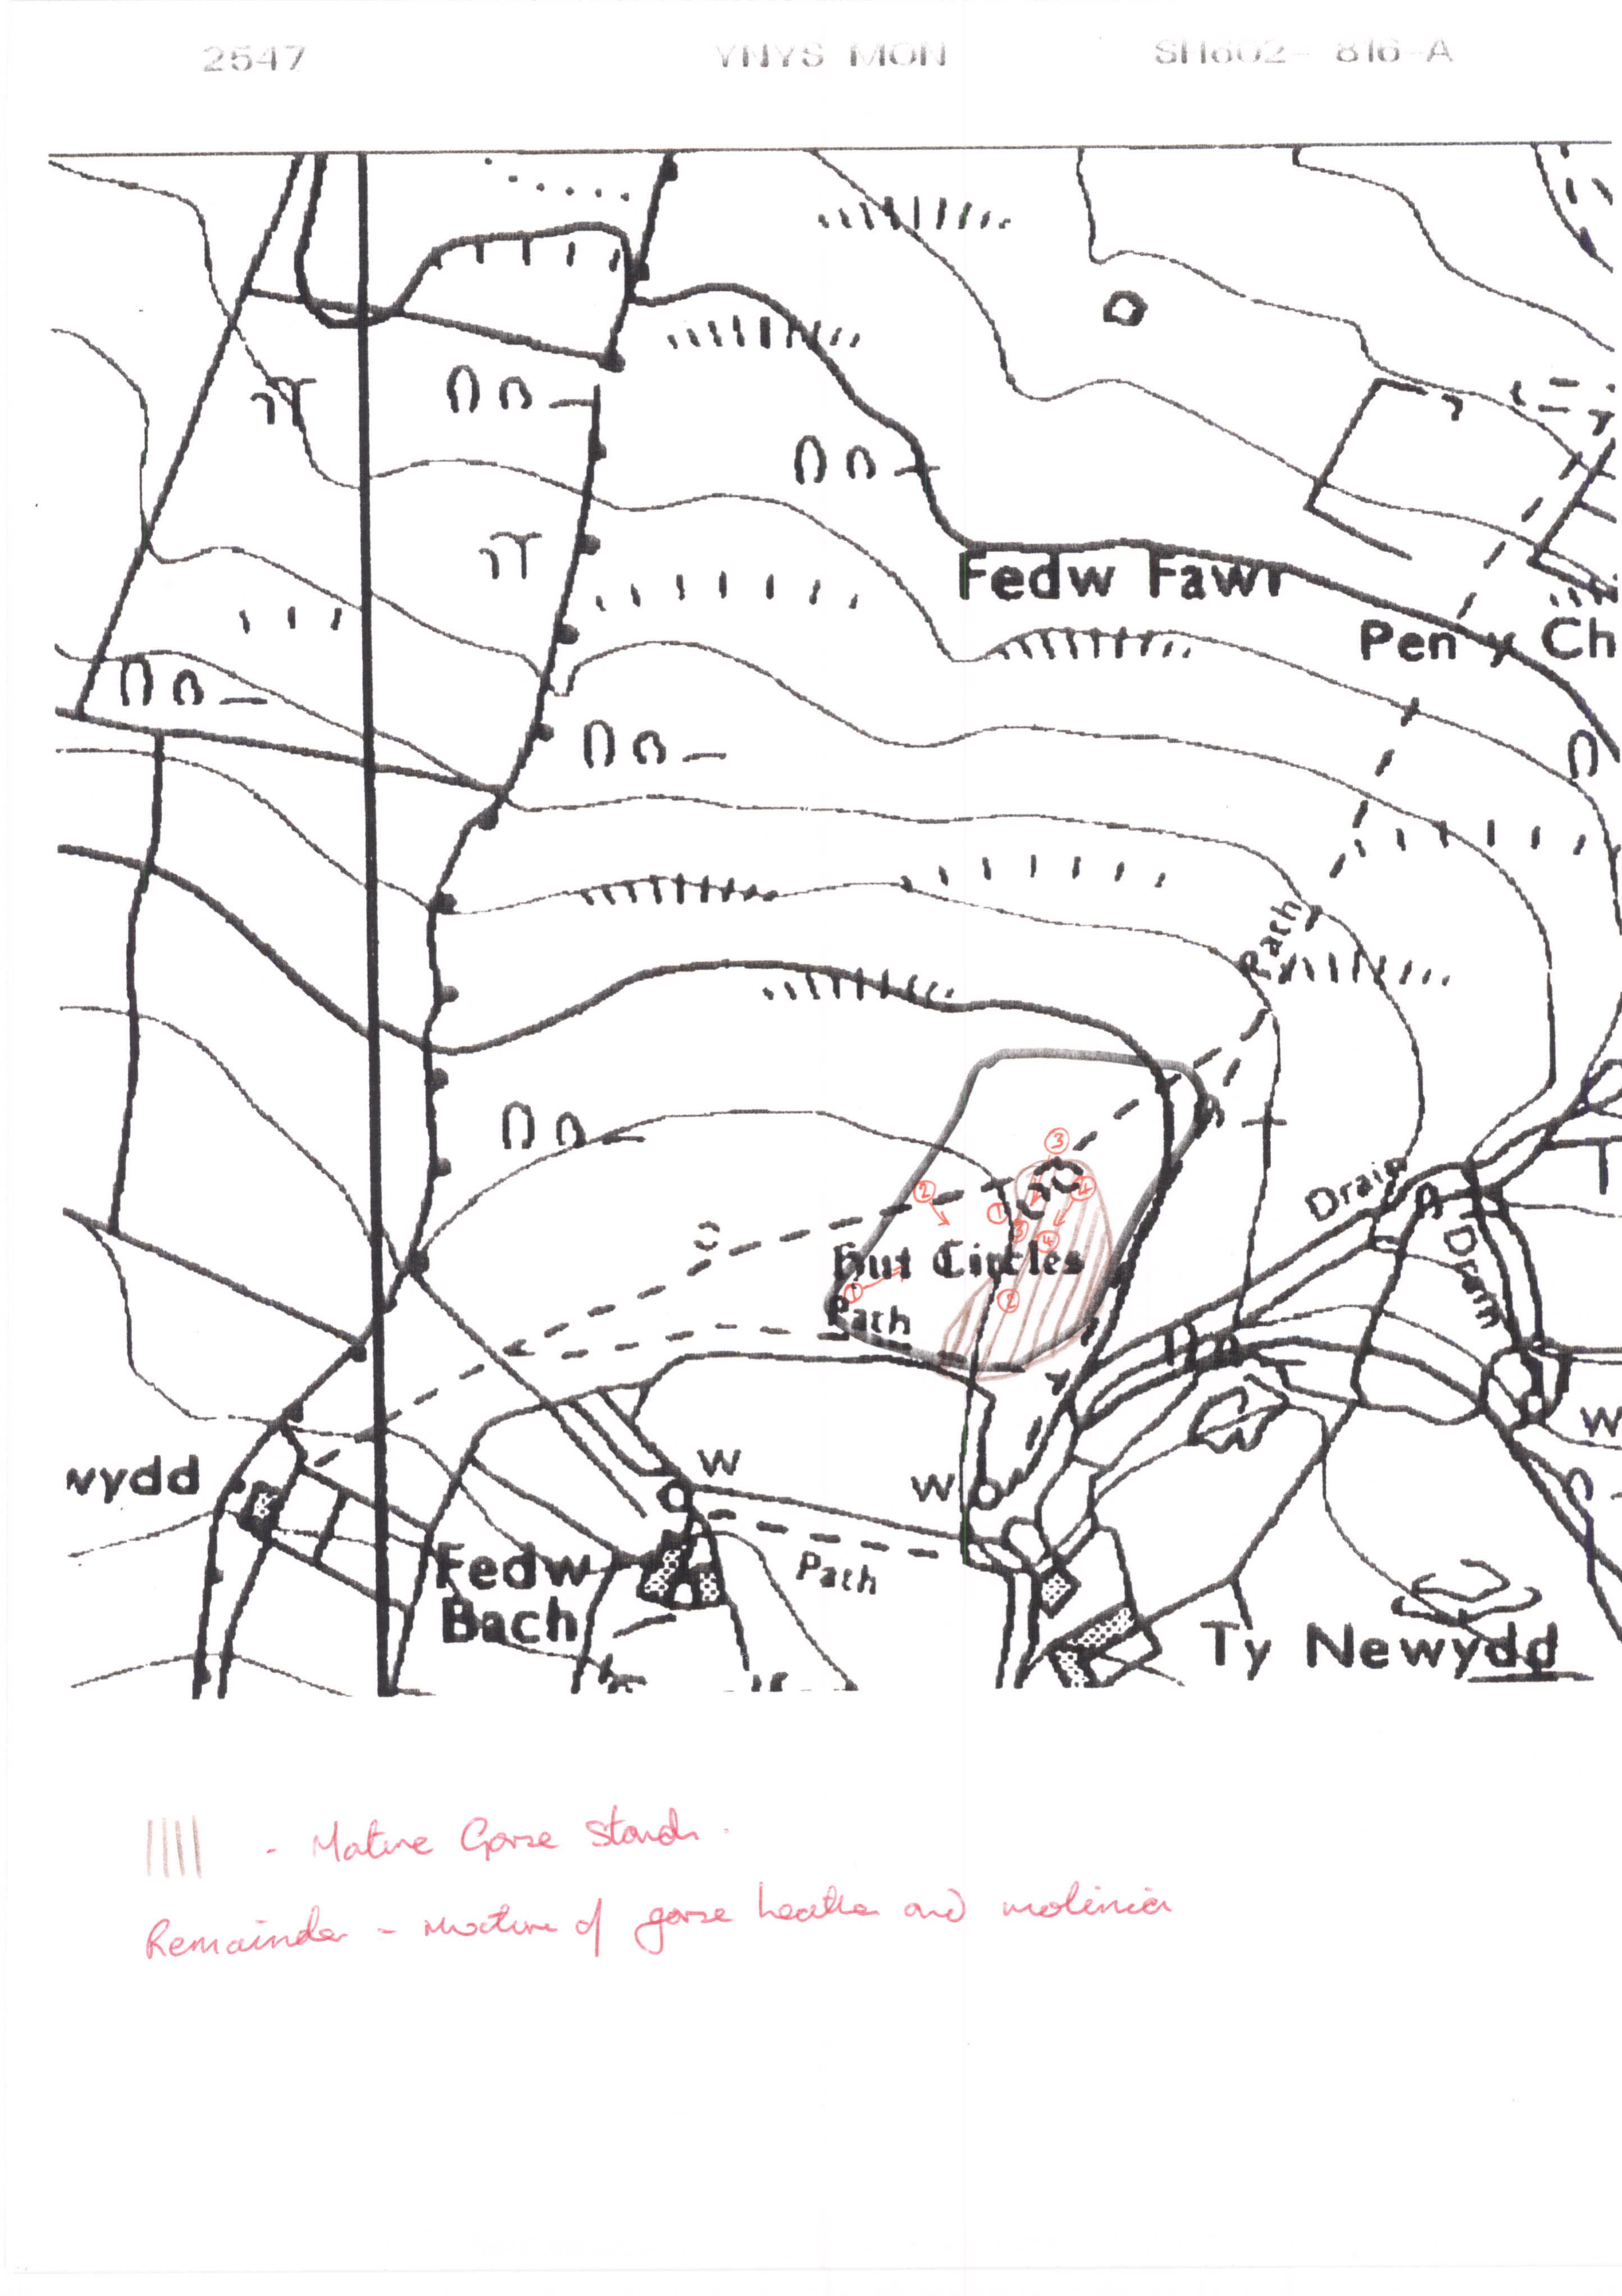 2547 YNYS MON SH602-816-A
Fedw Fawr
Pen
Ch
Path
Drain
Drain
Hut Circles
Path
3
2
4
1
3
4
1
2
wydd
W
W
W
Fedw
Bach
Path
Ty Newydd
- Mature Gorse Stands.
Remainder - mixture of gorse heather and molinia